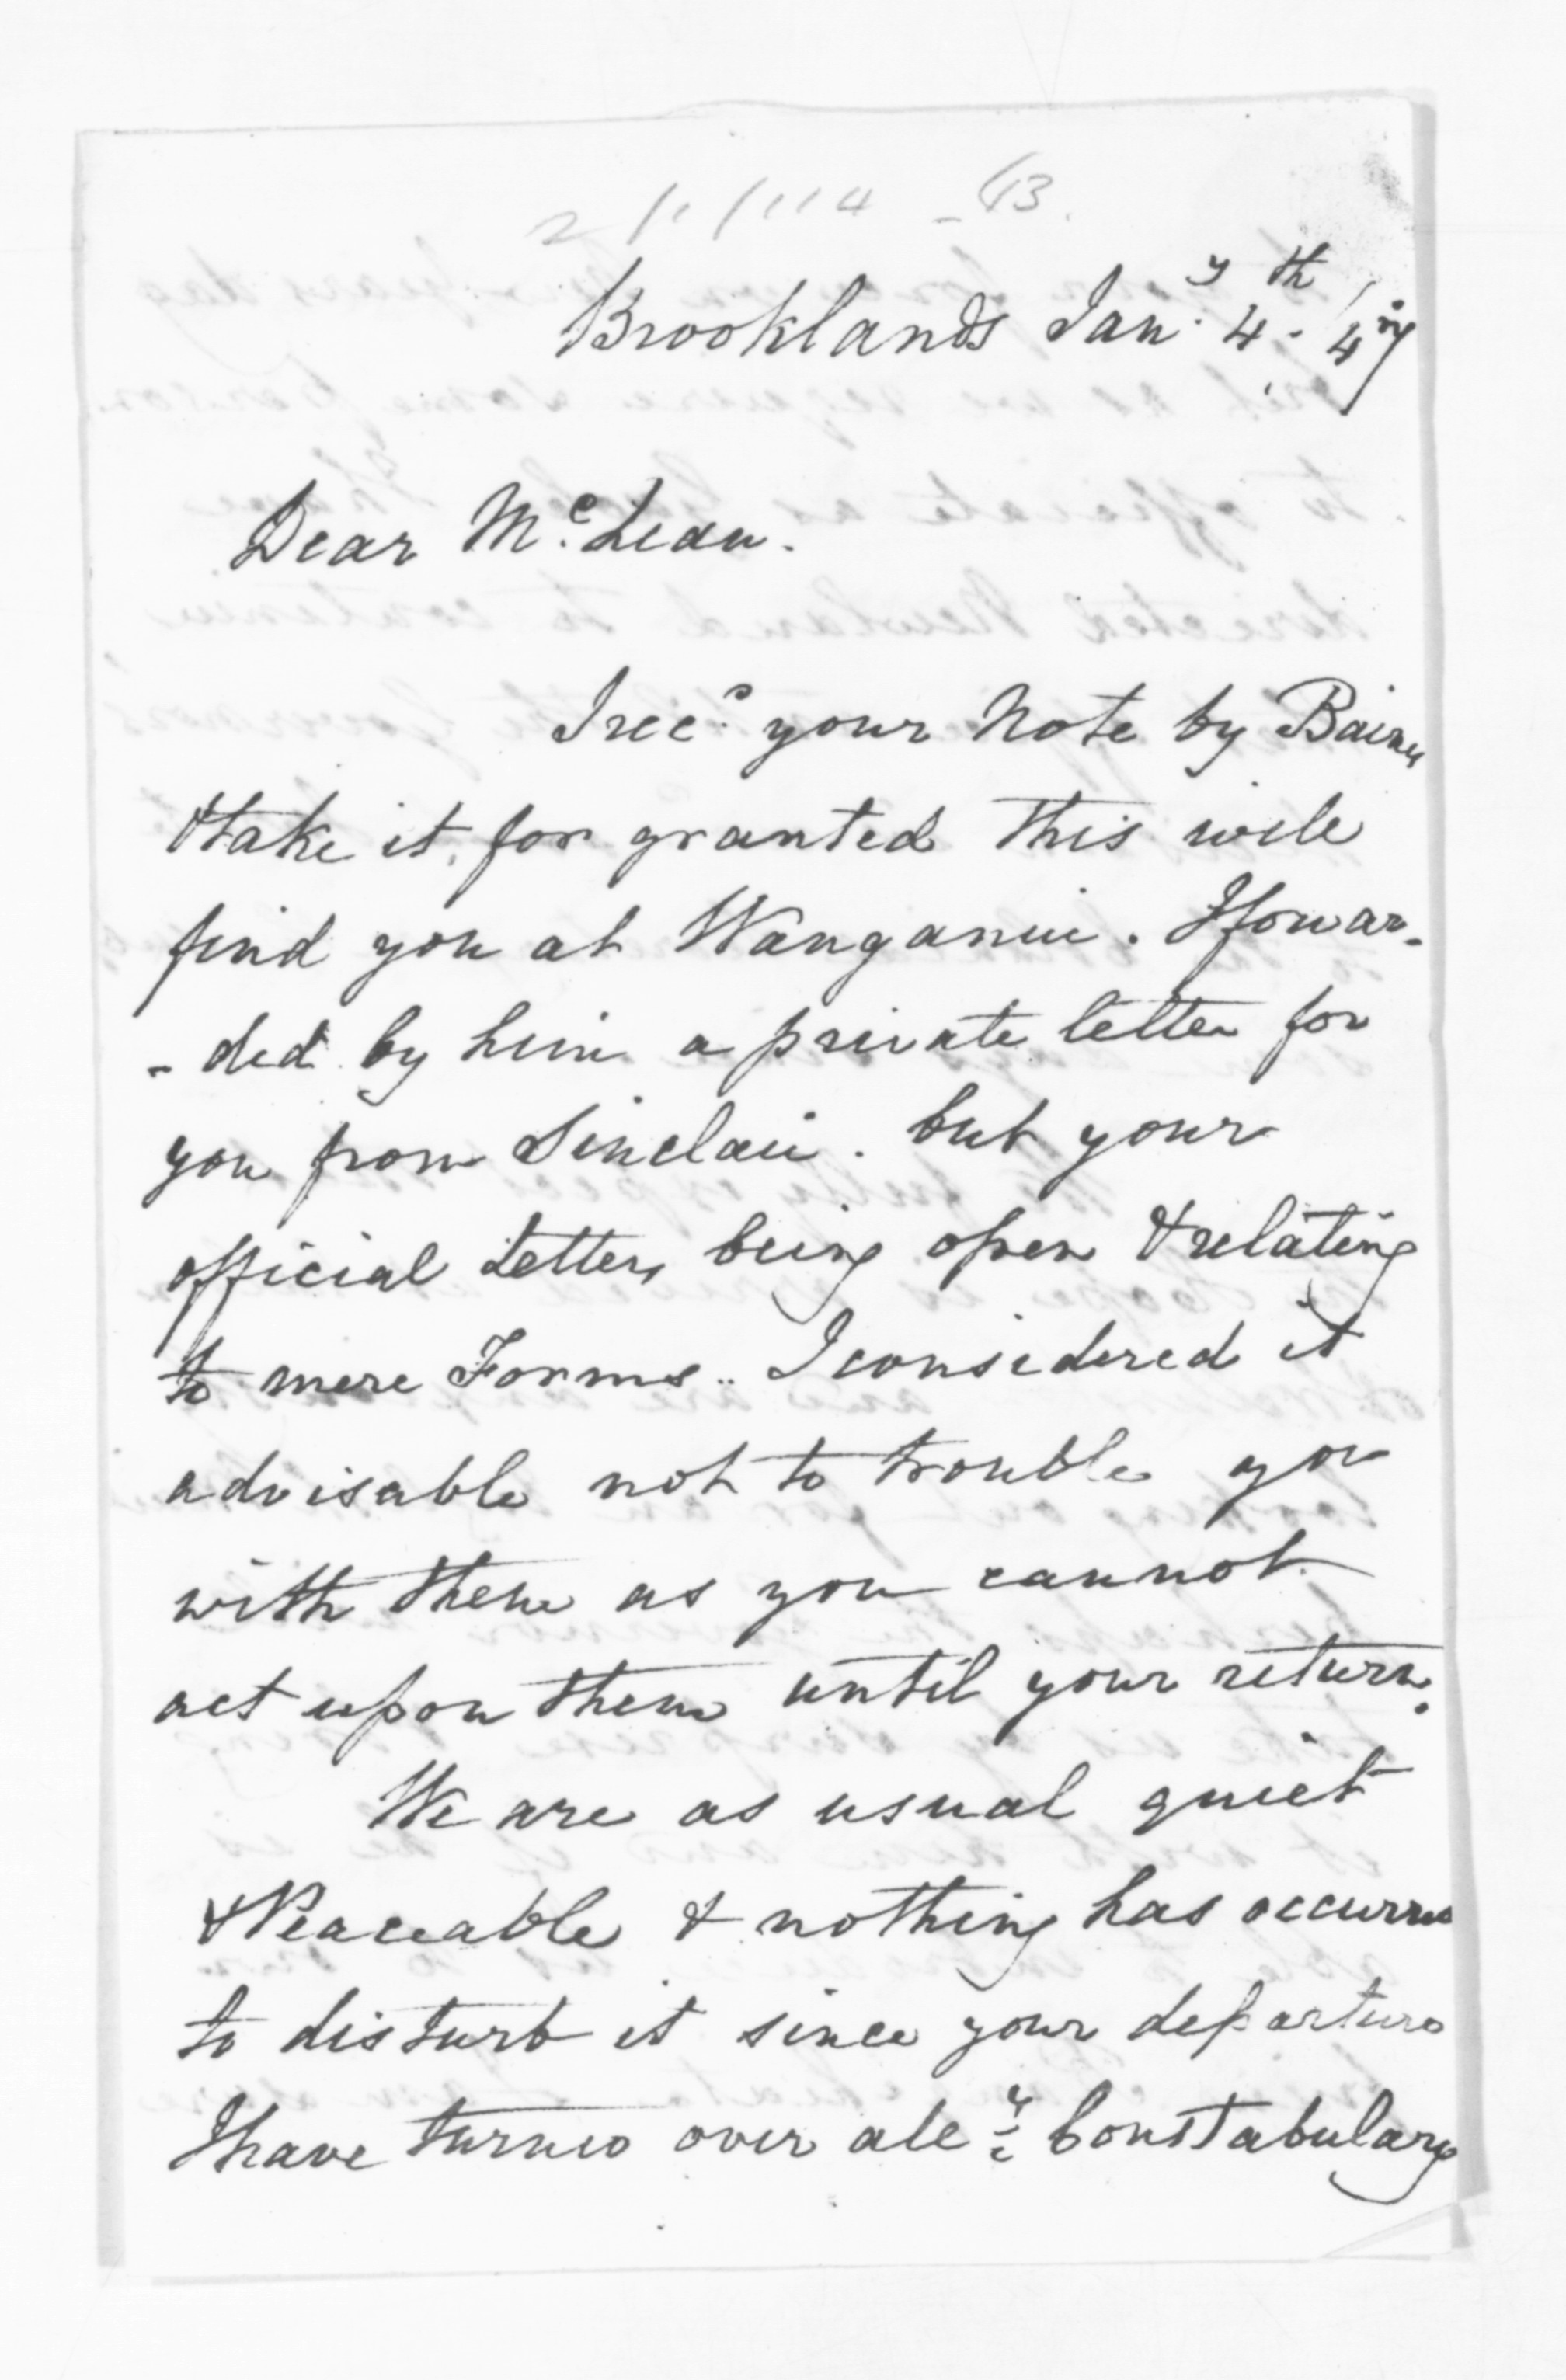 2/1/114 - 63.
Brooklands Jan.y 4th /47
Dear Mc.Lean.
I rec.d your Note by Baines
& take it for granted this will
find you at Wanganui. I forwar-
-ded by him a private letter for
you from Sinclair. but your
official Letters being open & relating
to mere Forms.. I considered it
advisable not to trouble you
with them as you cannot
act upon them until your return.
We are as usual quiet
& Peaceable & nothing has occurred
to disturb it since your departure
I have turned over all yr Constabulary